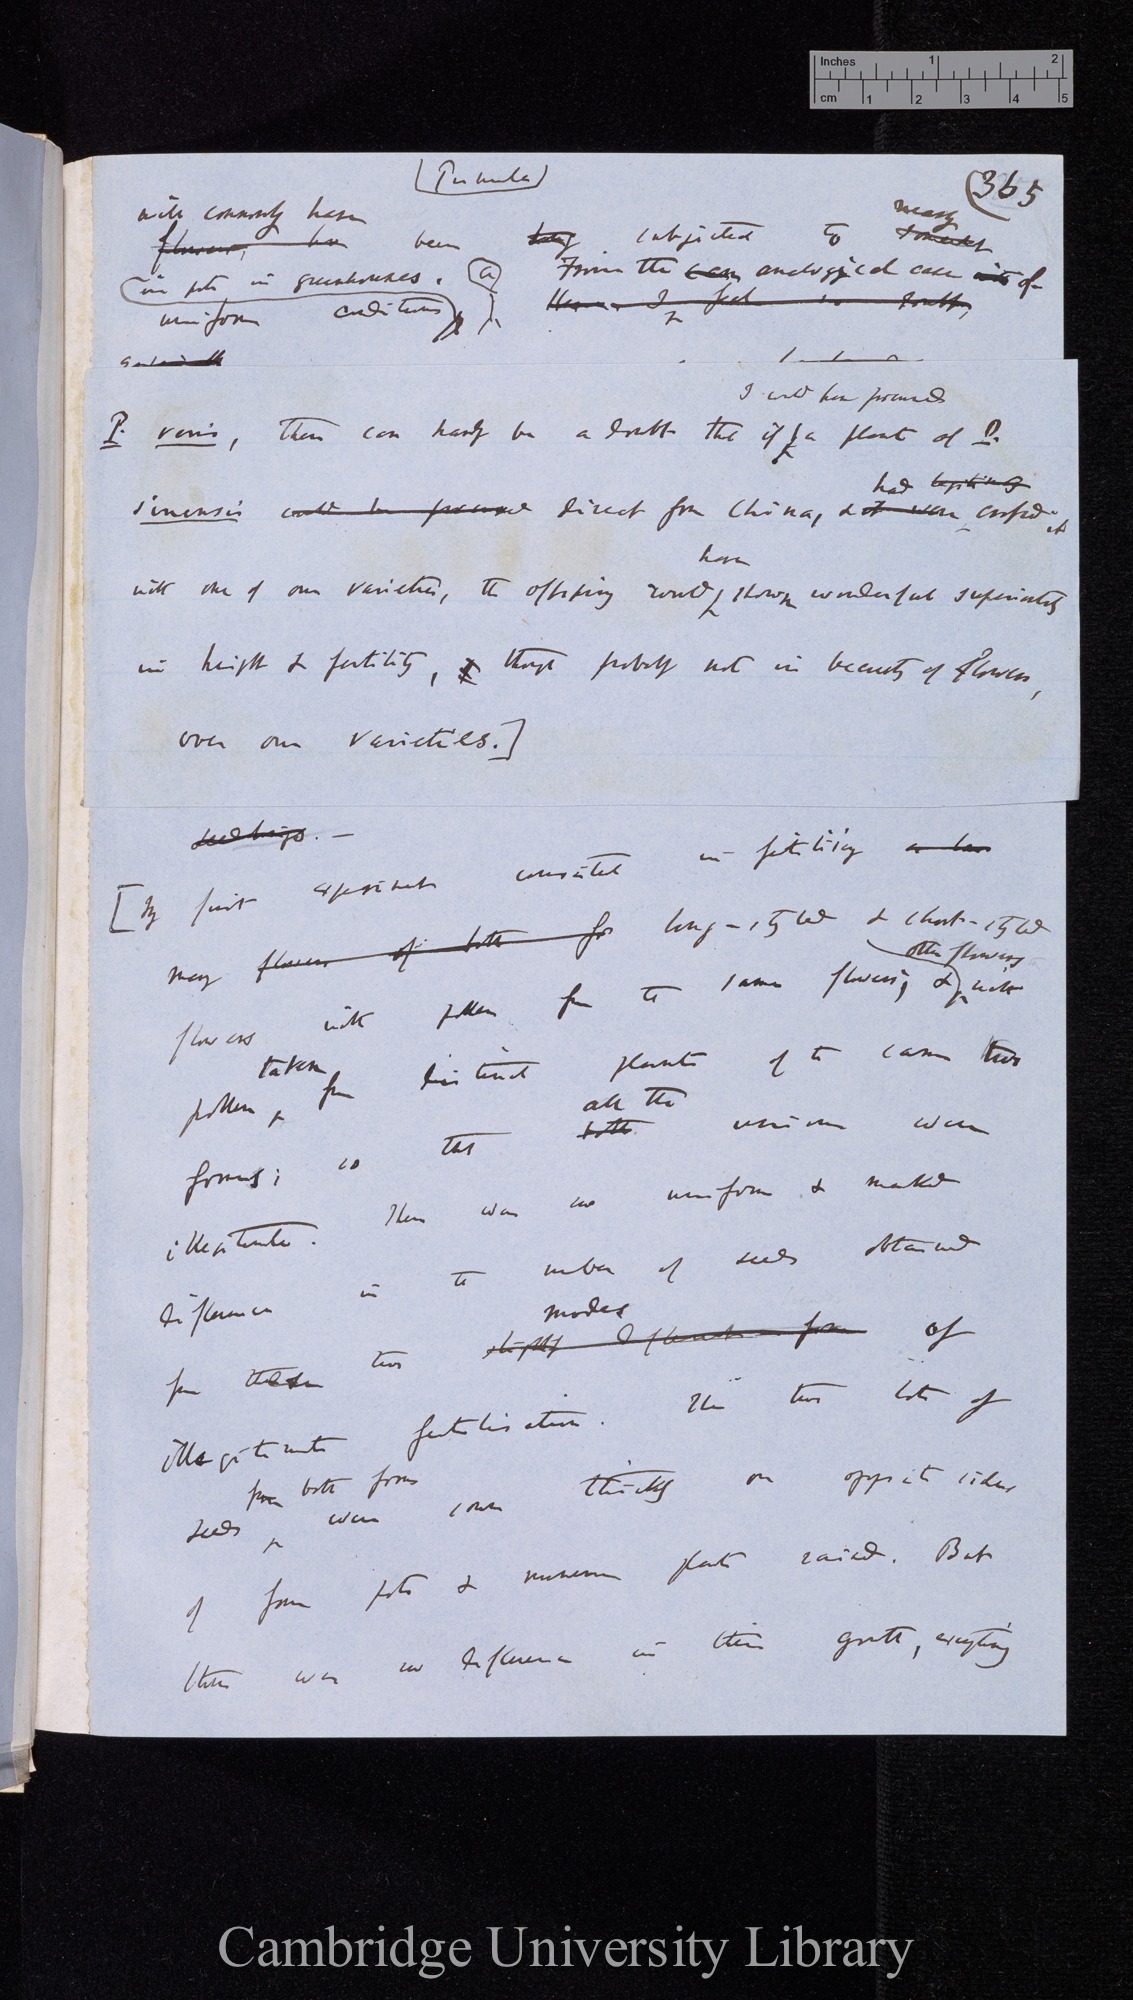 Inches 1 2
cm 1 2 3 4 5
(Primula)
365
will commonly have
many
flowers, have been being subjected to somewhat
in pots in greenhouses. (a) From the case analogical case with of
uniform conditions, Hence I feel no doubt,
I could have procured
P. veris, there can hardly be a doubt that if a plant of P.
had legitimately
sinensis could be procured direct from China, & it were crossed it
have
with one of our varieties, the offspring would shown wonderful superiority
in height & fertility, though probably not in beauty of flowers,
over our varieties.]
seedlings. —
[My first experiment consisted in fertilising a few
many flowers of both for long-styled & short-styled
other flowers
flowers with pollen from the same flowers, & with
taken
pollen, from distinct plants of the same two
all the
forms; so that both unions were
illegitimate. There was no uniform & marked
difference in the number of seeds obtained
modes
from these two slightly different form of
illegitimate fertilisation. The two lots of
from both forms
seeds were sown thickly on opposite sides
of four pots & numerous plants raised. But
there was no difference in their growth, excepting
Cambridge University Library